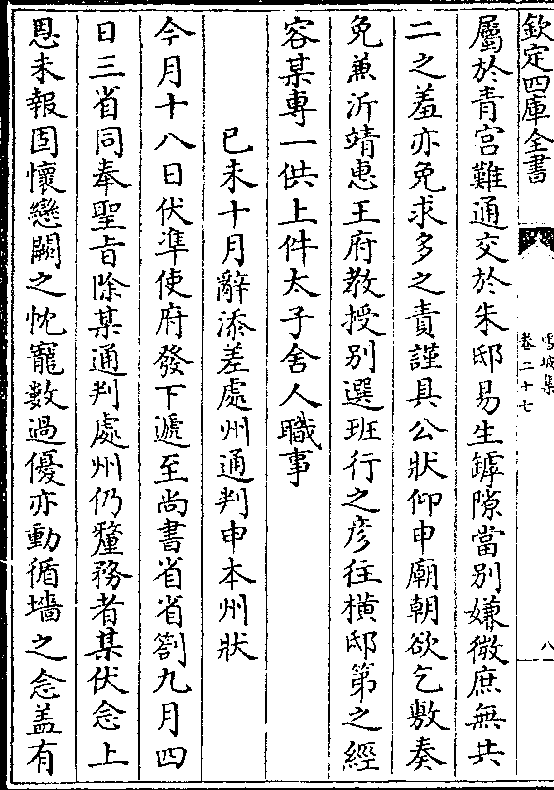 欽定四庫全書
卷二十七
八
屬於青宫難通交於朱邸易生罅隙當别嫌微庶無共
二之羞亦免求多之責謹具公狀仰申廟朝欲乞敷奏
免兼沂靖惠王府教授别選班行之彦往横邸第之經
容某專一供上件太子舍人職事
已未十月辭添差處州通判申本州狀
今月十八日伏準使府發下遞至尚書省省劄九月四
日三省同奉聖旨除某通判處州仍釐務者某伏念上
恩未報固懷戀闕之忱寵數過優亦動循墻之念盖有